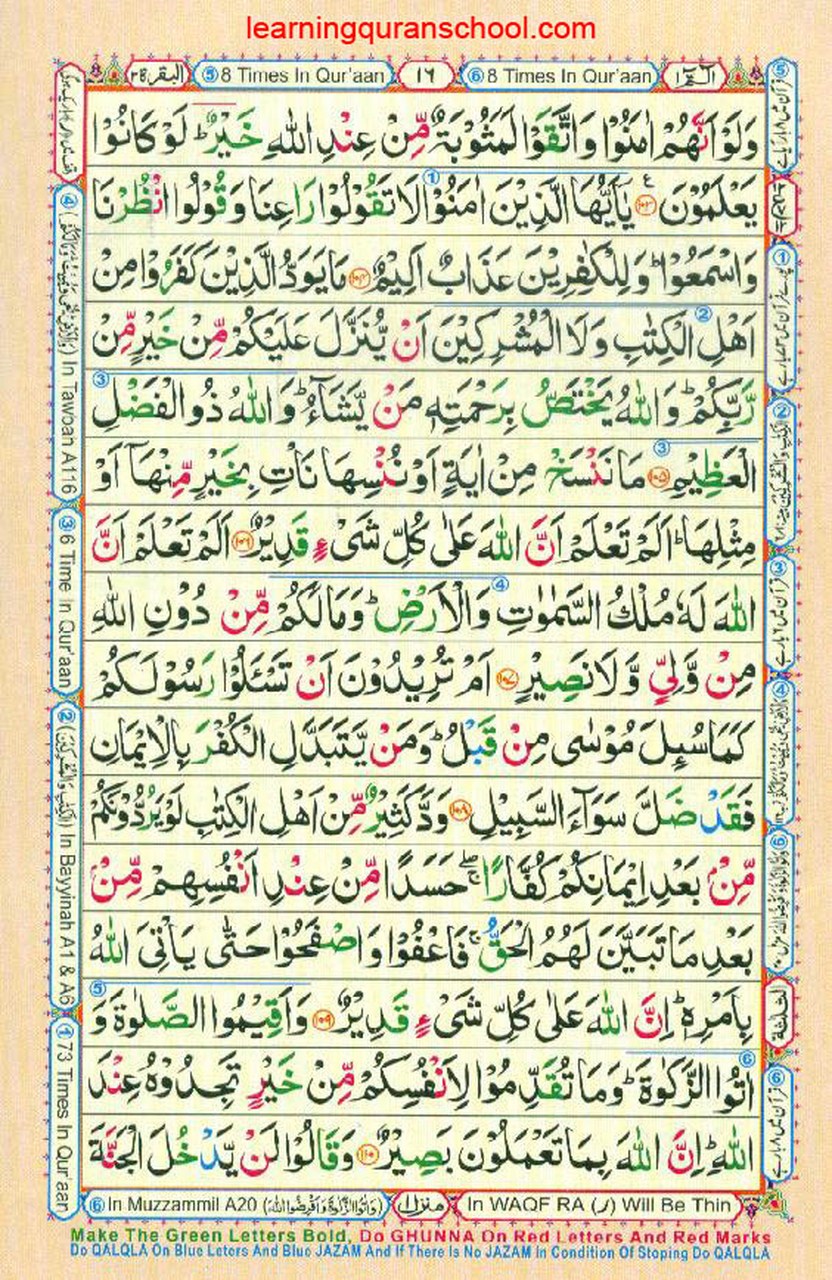 learningquranschool.com
البقرة ٢
⑤ 8 Times In Qur'aan
١٦
⑥ 8 Times In Qur'aan
الٓمّٓ ١
وَلَوْ اَنَّهُمْ اٰمَنُوْا وَاتَّقَوْا لَمَثُوْبَةٌ مِّنْ عِنْدِ اللّٰهِ خَيْرٌ ؕ لَوْ كَانُوْا
يَعْلَمُوْنَ ۝١٠٣ يٰٓاَيُّهَا الَّذِيْنَ اٰمَنُوْا لَا تَقُوْلُوْا رَاعِنَا وَقُوْلُوا انْظُرْنَا
وَاسْمَعُوْا ؕ وَلِلْكٰفِرِيْنَ عَذَابٌ اَلِيْمٌ ۝١٠٤ مَا يَوَدُّ الَّذِيْنَ كَفَرُوْا مِنْ
اَهْلِ الْكِتٰبِ وَلَا الْمُشْرِكِيْنَ اَنْ يُّنَزَّلَ عَلَيْكُمْ مِّنْ خَيْرٍ مِّنْ
رَّبِّكُمْ ؕ وَاللّٰهُ يَخْتَصُّ بِرَحْمَتِهٖ مَنْ يَّشَآءُ ؕ وَاللّٰهُ ذُو الْفَضْلِ
الْعَظِيْمِ ۝١٠٥ مَا نَنْسَخْ مِنْ اٰيَةٍ اَوْ نُنْسِهَا نَاْتِ بِخَيْرٍ مِّنْهَآ اَوْ
مِثْلِهَا ؕ اَلَمْ تَعْلَمْ اَنَّ اللّٰهَ عَلٰى كُلِّ شَىْءٍ قَدِيْرٌ ۝١٠٦ اَلَمْ تَعْلَمْ اَنَّ
اللّٰهَ لَهٗ مُلْكُ السَّمٰوٰتِ وَالْاَرْضِ ؕ وَمَا لَكُمْ مِّنْ دُوْنِ اللّٰهِ
مِنْ وَّلِىٍّ وَّلَا نَصِيْرٍ ۝١٠٧ اَمْ تُرِيْدُوْنَ اَنْ تَسْـَٔلُوْا رَسُوْلَكُمْ
كَمَا سُئِلَ مُوْسٰى مِنْ قَبْلُ ؕ وَمَنْ يَّتَبَدَّلِ الْكُفْرَ بِالْاِيْمَانِ
فَقَدْ ضَلَّ سَوَآءَ السَّبِيْلِ ۝١٠٨ وَدَّ كَثِيْرٌ مِّنْ اَهْلِ الْكِتٰبِ لَوْ يَرُدُّوْنَكُمْ
مِّنْۢ بَعْدِ اِيْمَانِكُمْ كُفَّارًا ۚۖ حَسَدًا مِّنْ عِنْدِ اَنْفُسِهِمْ مِّنْۢ
بَعْدِ مَا تَبَيَّنَ لَهُمُ الْحَقُّ ۚ فَاعْفُوْا وَاصْفَحُوْا حَتّٰى يَاْتِىَ اللّٰهُ
بِاَمْرِهٖ ؕ اِنَّ اللّٰهَ عَلٰى كُلِّ شَىْءٍ قَدِيْرٌ ۝١٠٩ وَاَقِيْمُوا الصَّلٰوةَ وَ
اٰتُوا الزَّكٰوةَ ؕ وَمَا تُقَدِّمُوْا لِاَنْفُسِكُمْ مِّنْ خَيْرٍ تَجِدُوْهُ عِنْدَ
اللّٰهِ ؕ اِنَّ اللّٰهَ بِمَا تَعْمَلُوْنَ بَصِيْرٌ ۝١١٠ وَقَالُوْا لَنْ يَّدْخُلَ الْجَنَّةَ
④ In Tawbah A116
③ 6 Time In Qur'aan
② In Bayyinah A1 & A6
① 73 Times In Qur'aan
⑥ In Muzzammil A20 (وَاٰتُوا الزَّكٰوةَ وَاَقْرِضُوا اللّٰهَ)
منزل ١
In WAQF RA (ر) Will Be Thin
Make The Green Letters Bold, Do GHUNNA On Red Letters And Red Marks
Do QALQLA On Blue Leters And Blue JAZAM And If There Is No JAZAM In Condition Of Stoping Do QALQLA